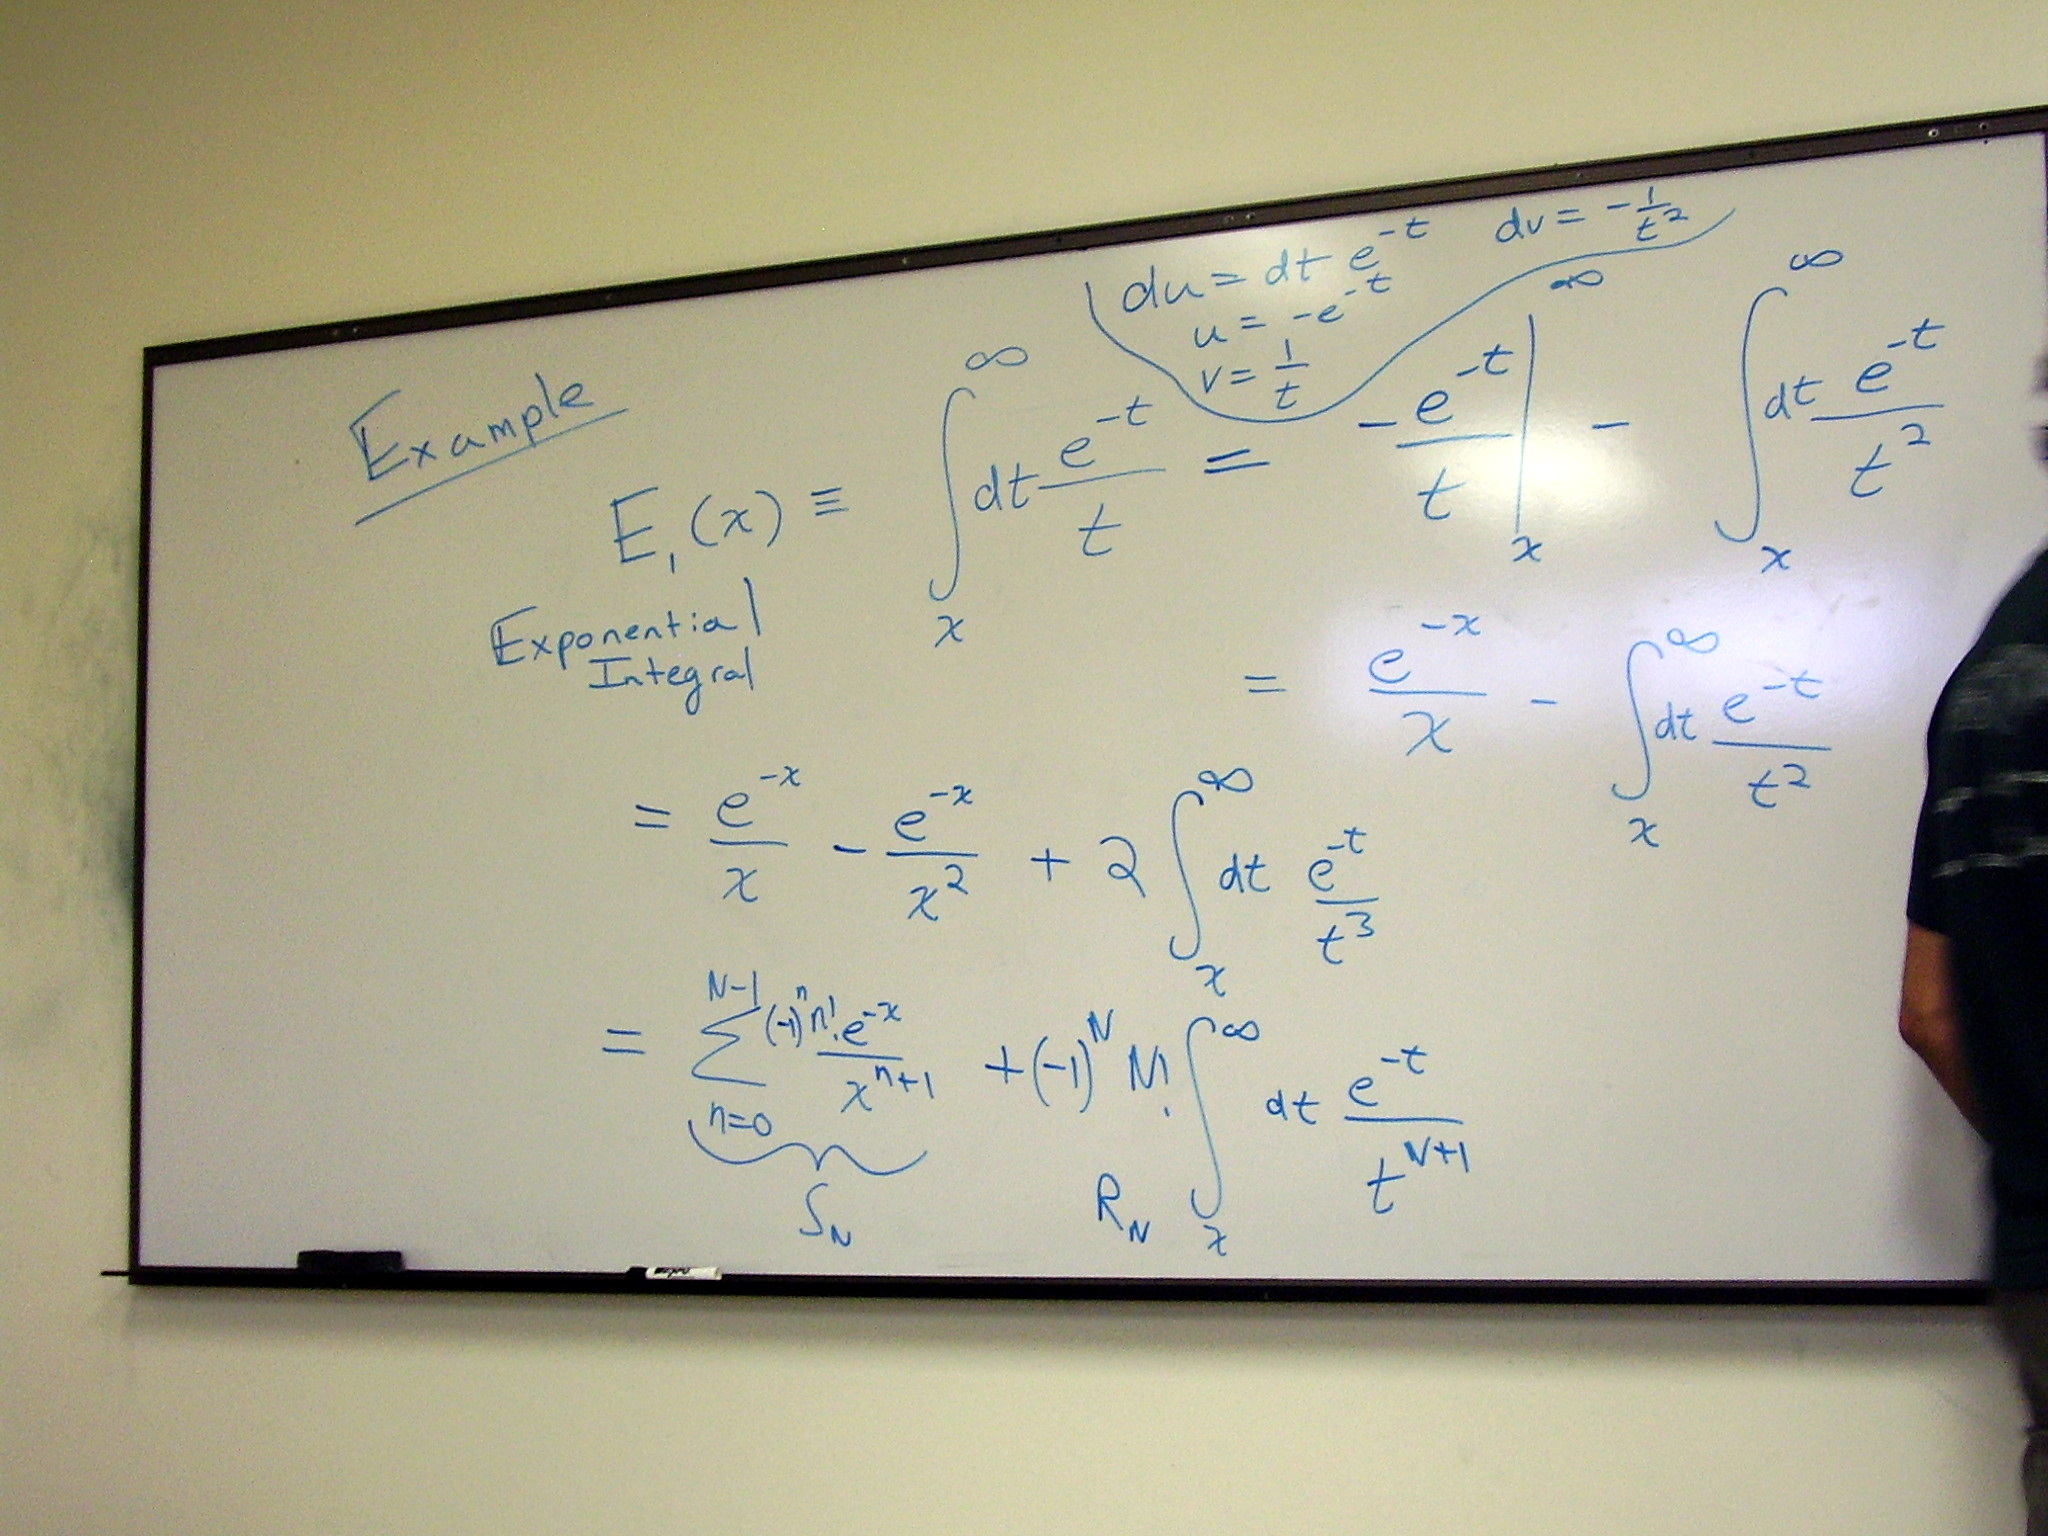 Example
du = dt e^{-t} dv = -\frac{1}{t^2}
u = -e^{-t}
v = \frac{1}{t}
E_1(x) ≡ \int_x^∞ dt \frac{e^{-t}}{t} = -\frac{e^{-t}}{t} |_x^∞ - \int_x^∞ dt \frac{e^{-t}}{t^2}
Exponential
Integral
= \frac{e^{-x}}{x} - \int_x^∞ dt \frac{e^{-t}}{t^2}
= \frac{e^{-x}}{x} - \frac{e^{-x}}{x^2} + 2 \int_x^∞ dt \frac{e^{-t}}{t^3}
= \sum_{n=0}^{N-1} (-1)^n n! \frac{e^{-x}}{x^{n+1}} + (-1)^N N! \int_x^∞ dt \frac{e^{-t}}{t^{N+1}}
S_N R_N